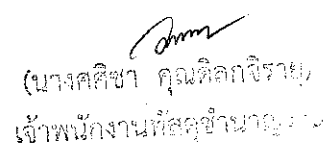 (นางศศิชา คุณดิลกจิรายุ)
เจ้าพนักงานพัสดุชำนาญ